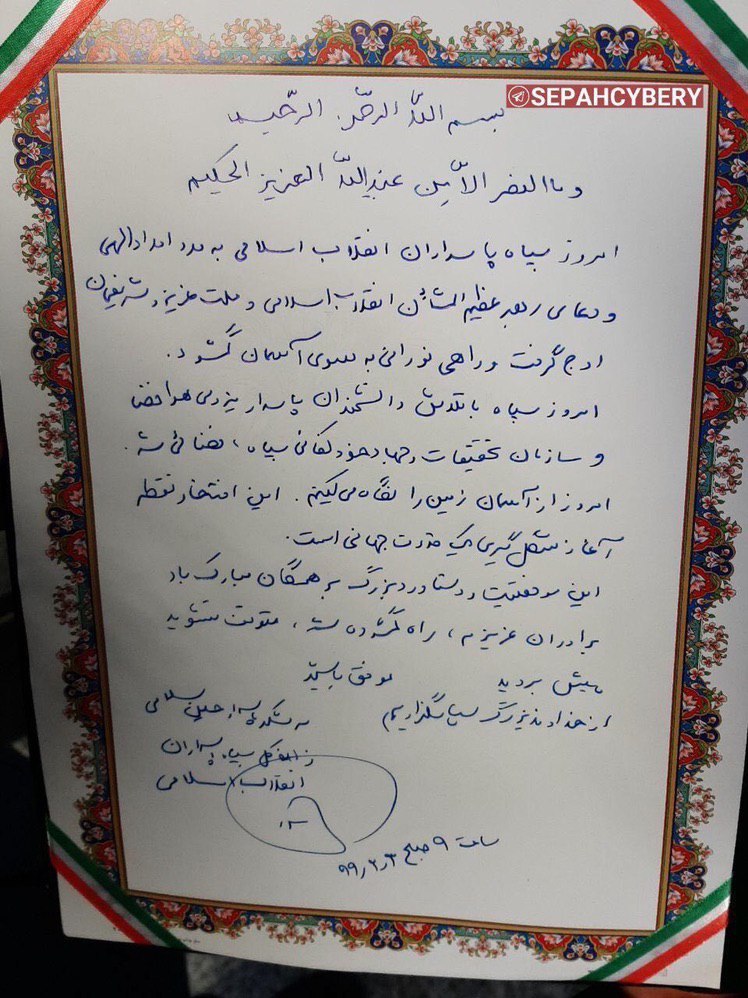 SEPAHCYBERY
بسم الله الرحمن الرحیم
و ما النصر الا من عند الله العزیز الحکیم
امروز سپاه پاسداران انقلاب اسلامی به مدد امداد الهی
و دعای رهبر عظیم الشأن انقلاب اسلامی و ملت عزیز و شریفمان
اوج گرفت و راهی نورانی به سوی آسمان گشود.
امروز سپاه با تلاش دانشمندان پاسدار نیروی هوافضا
و سازمان تحقیقات و جهاد خودکفائی سپاه، فضائی شد.
امروز از آسمان زمین را نگاه می‌کنیم. این افتخار نقطه
آغاز شکل گیری یک قدرت جهانی است.
این موفقیت و دستاورد بزرگ بر همگان مبارک باد
برادران عزیزم، راه گشوده شد، متوقف نشوید
پیش بروید موفق باشید
از خداوند بزرگ سپاسگزاریم
سرلشکر پاسدار حسین سلامی
فرمانده کل سپاه پاسداران
انقلاب اسلامی
ساعت ۹ صبح ۹۹/۲/۳